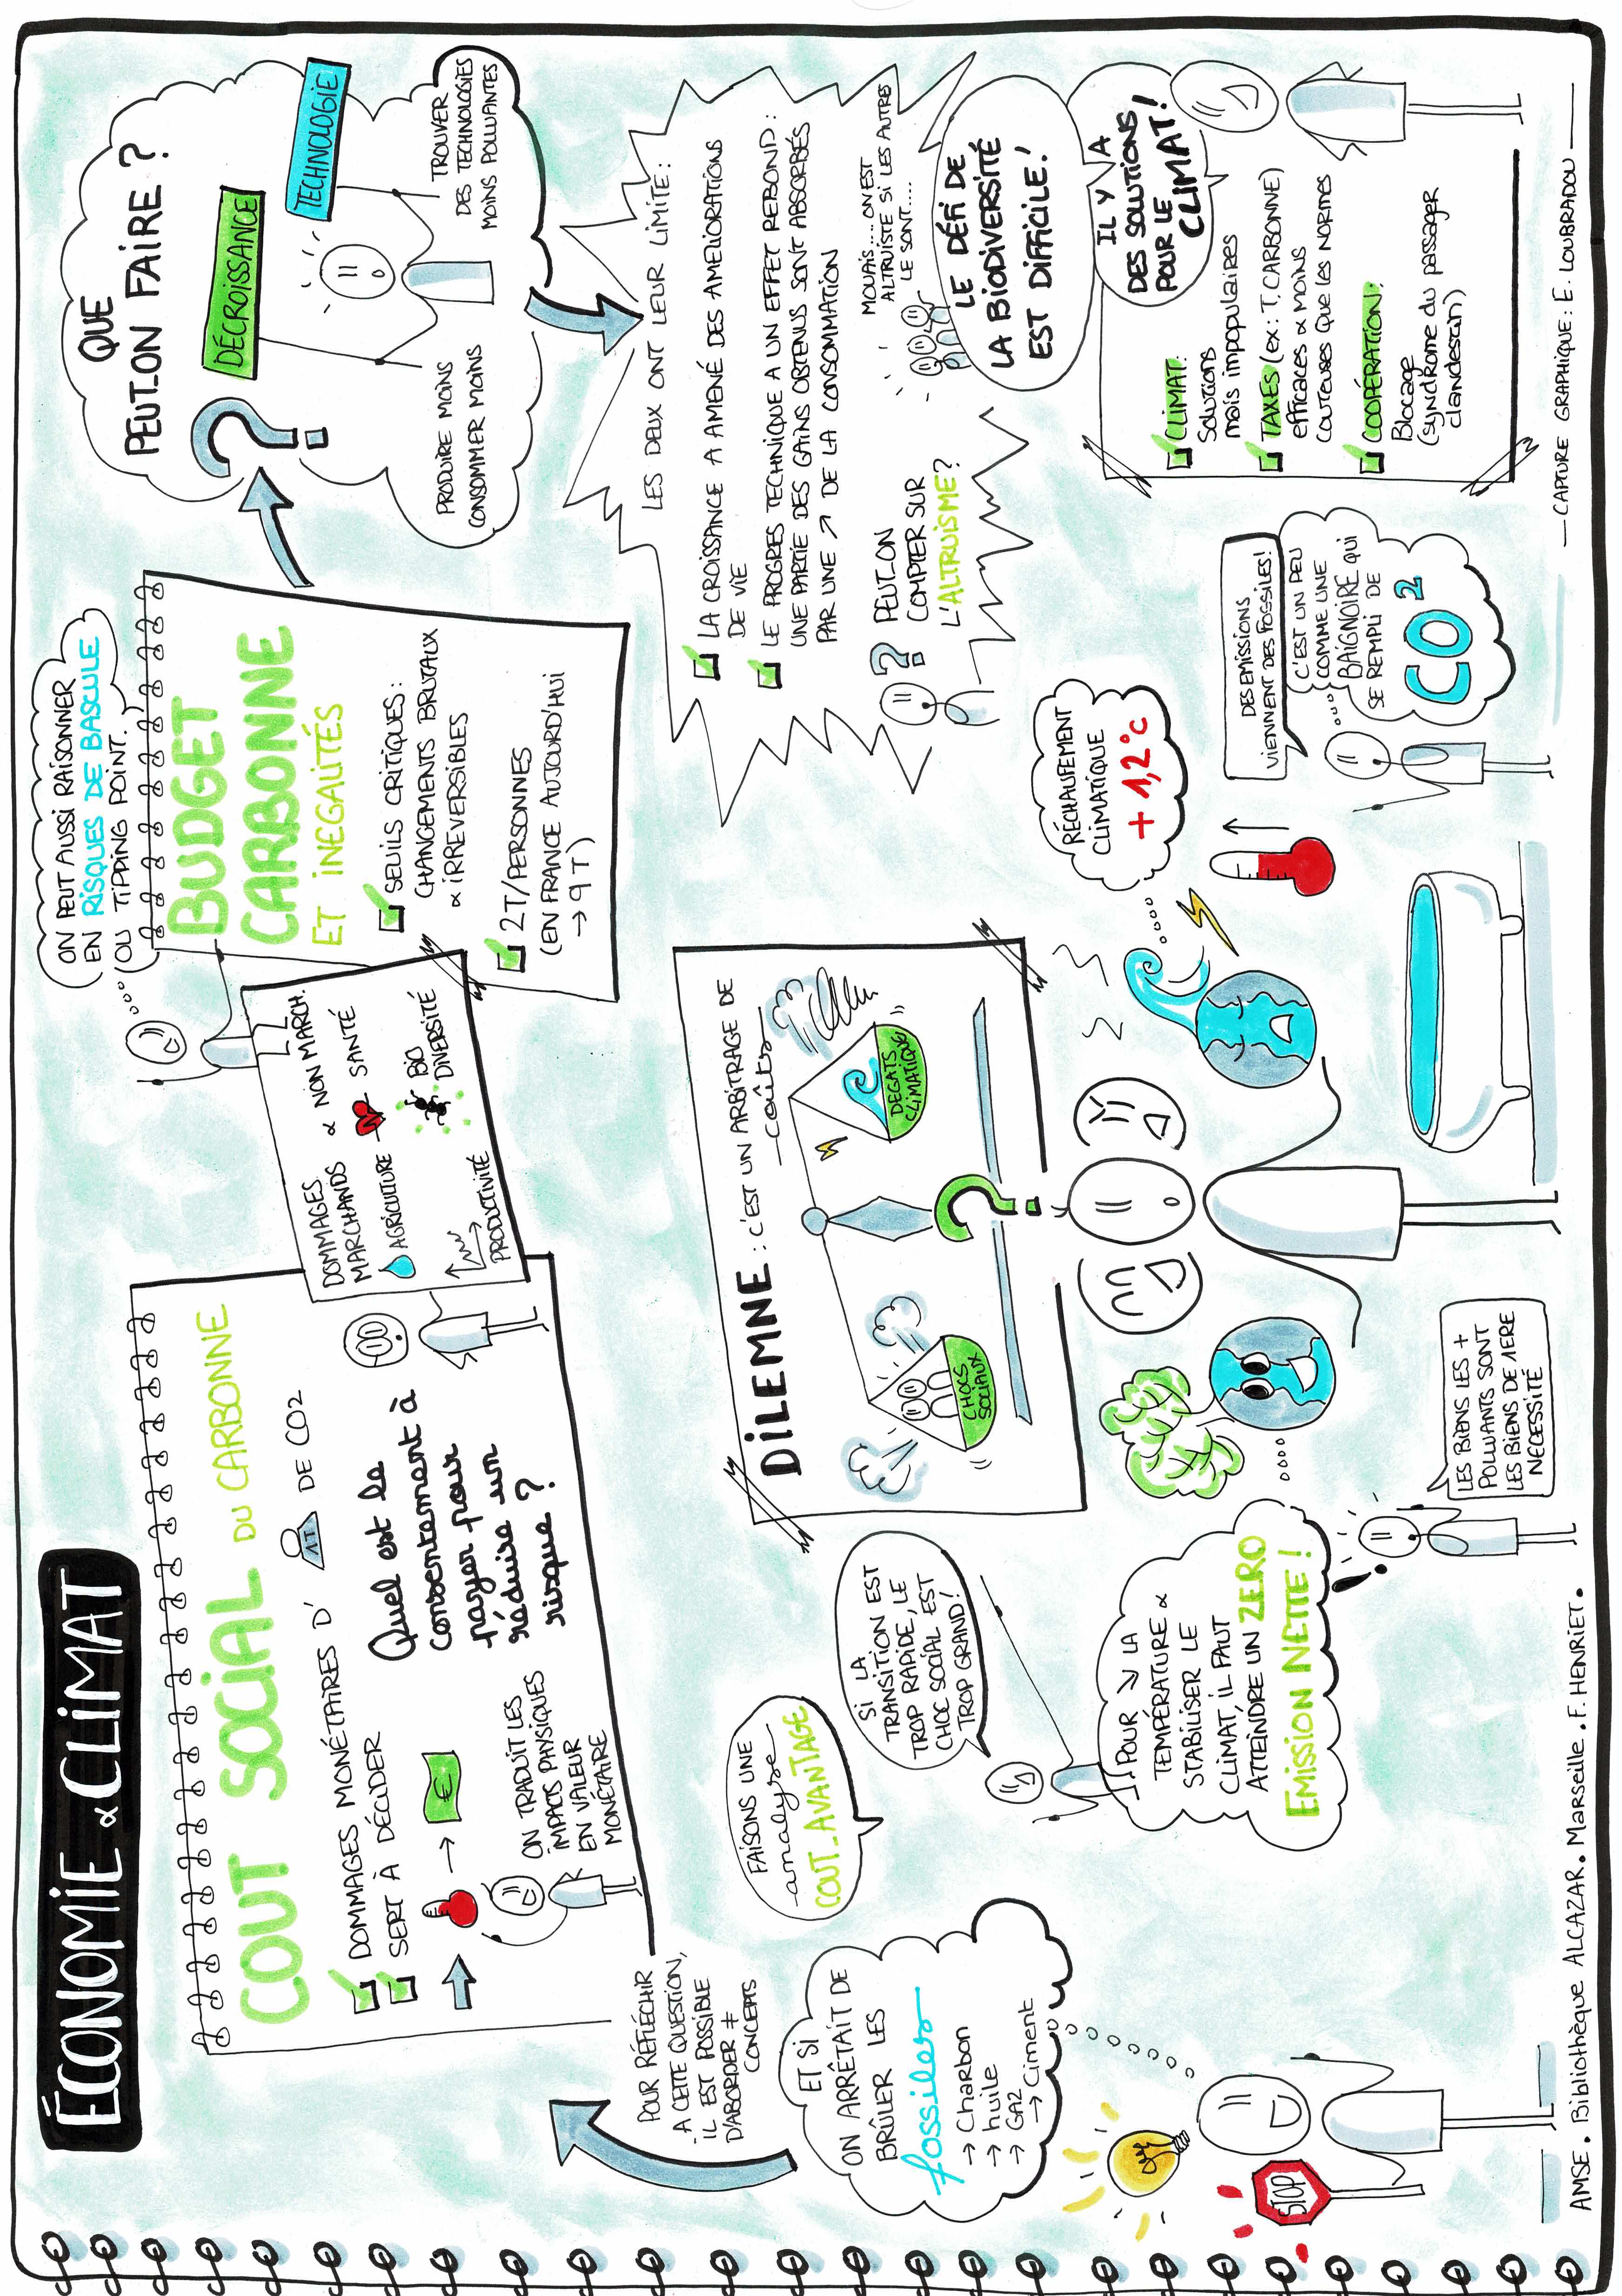 ÉCONOMIE & CLIMAT
COUT SOCIAL DU CARBONNE
DOMMAGES MONÉTAIRES D' 1T DE CO2
SERT À DÉCIDER
€
ON TRADUIT LES
IMPACTS PHYSIQUES
EN VALEUR
MONÉTAIRE
Quel est le
consentement à
payer pour
réduire un
risque ?
DOMMAGES
MARCHANDS & NON MARCH.
AGRICULTURE
SANTÉ
PRODUCTIVITÉ
BIO
DIVERSITÉ
ON PEUT AUSSI RAISONNER
EN RISQUES DE BASCULE
(OU TIPPING POINT.)
BUDGET
CARBONNE
ET INEGALITÉS
SEUILS CRITIQUES :
CHANGEMENTS BRUTAUX
& IRREVERSIBLES
2T/PERSONNES
(EN FRANCE AUJOURD'HUI
→ 9T)
QUE
PEUT-ON FAIRE ?
DÉCROISSANCE
TECHNOLOGIE
PRODUIRE MOINS
CONSOMMER MOINS
TROUVER
DES TECHNOLOGIES
MOINS POLLUANTES
LES DEUX ONT LEUR LIMITE :
LA CROISSANCE A AMENÉ DES AMELIORATIONS
DE VIE
LE PROGRES TECHNIQUE A UN EFFET REBOND :
UNE PARTIE DES GAINS OBTENUS SONT ABSORBÉS
PAR UNE ↗ DE LA CONSOMMATION
?
PEUT-ON
COMPTER SUR
L'ALTRUISME ?
MOUAIS.... ON EST
ALTRUISTE SI LES AUTRES
LE SONT....
LE DÉFI DE
LA BIODIVERSITÉ
EST DIFFICILE !
IL Y A
DES SOLUTIONS
POUR LE
CLIMAT !
CLIMAT :
Solutions
mais impopulaires
TAXES (ex : T. CARBONNE)
efficaces & moins
couteuses que les normes
COOPÉRATION :
Blocage
(syndrome du passager
clandestin)
POUR RÉFLÉCHIR
A CETTE QUESTION,
IL EST POSSIBLE
D'ABORDER ≠
CONCEPTS
ET SI
ON ARRÊTAIT DE
BRÛLER LES
fossiles
→ Charbon
→ huile
→ GAZ
→ Ciment
STOP
FAISONS UNE
analyse
COUT-AVANTAGE
SI LA
TRANSITION EST
TROP RAPIDE, LE
CHOC SOCIAL EST
TROP GRAND !
POUR ↘ LA
TEMPÉRATURE &
STABILISER LE
CLIMAT, IL FAUT
ATTEINDRE UN ZERO
EMISSION NETTE !
LES BIENS LES +
POLLUANTS SONT
LES BIENS DE 1ERE
NECESSITÉ
DILEMNE : C'EST UN ARBITRAGE DE
coûts
CHOCS
SOCIAUX
DEGATS
CLIMATIQUE
?
RÉCHAUFEMENT
CLIMATIQUE
+ 1,2°C
DES EMISSIONS
VIENNENT DES FOSSILES !
C'EST UN PEU
COMME UNE
BAIGNOIRE QUI
SE REMPLI DE
CO2
AMSE . Bibliothèque ALCAZAR . Marseille . F. HENRIET .
CAPTURE GRAPHIQUE : E. LOUBRADOU